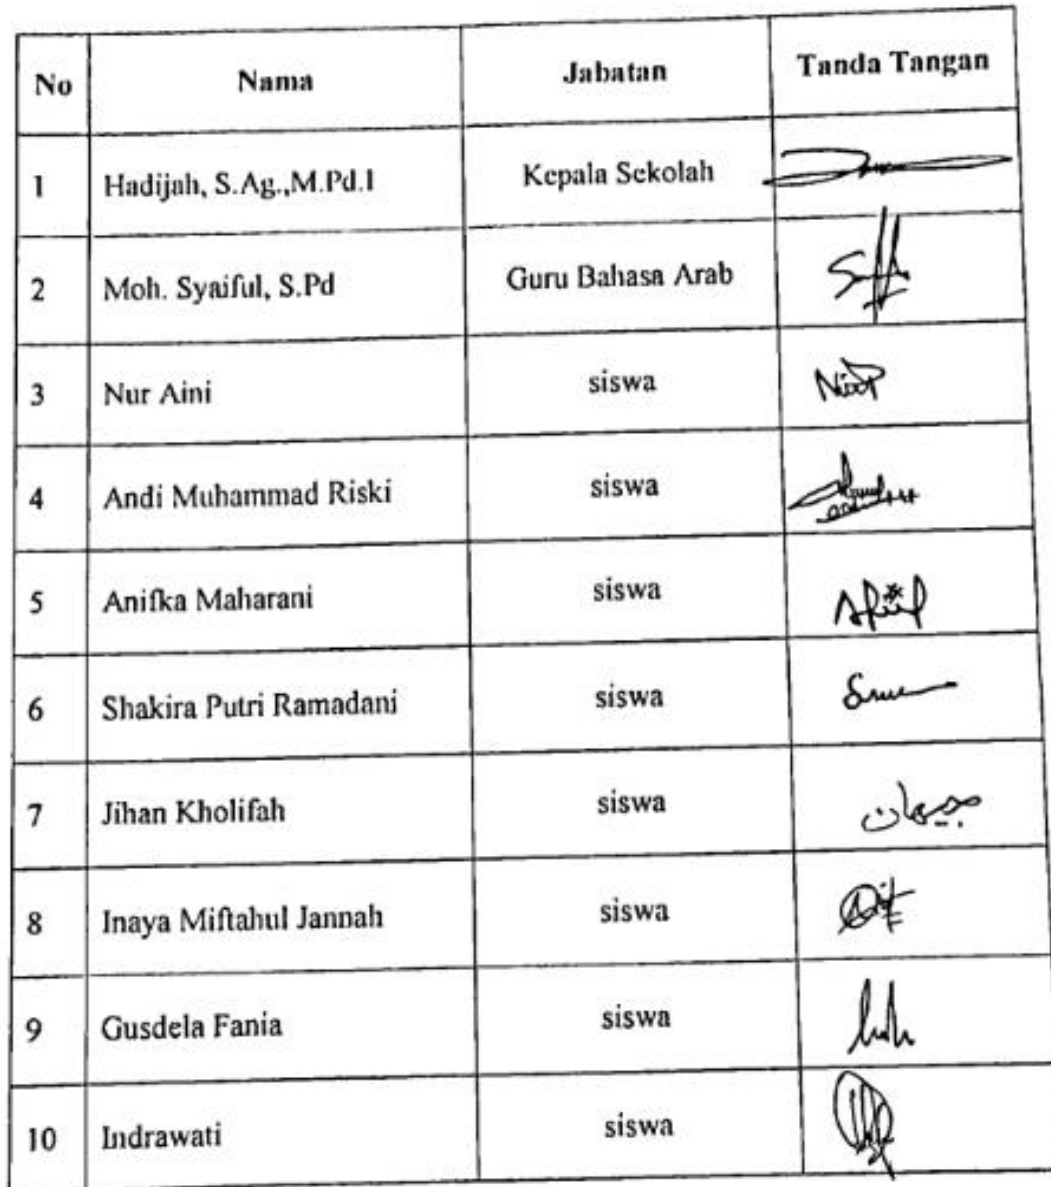 No Nama Jabatan Tanda Tangan
1 Hadijah, S.Ag.,M.Pd.I Kepala Sekolah
2 Moh. Syaiful, S.Pd Guru Bahasa Arab
3 Nur Aini siswa
4 Andi Muhammad Riski siswa
5 Anifka Maharani siswa
6 Shakira Putri Ramadani siswa
7 Jihan Kholifah siswa جيهان
8 Inaya Miftahul Jannah siswa
9 Gusdela Fania siswa
10 Indrawati siswa